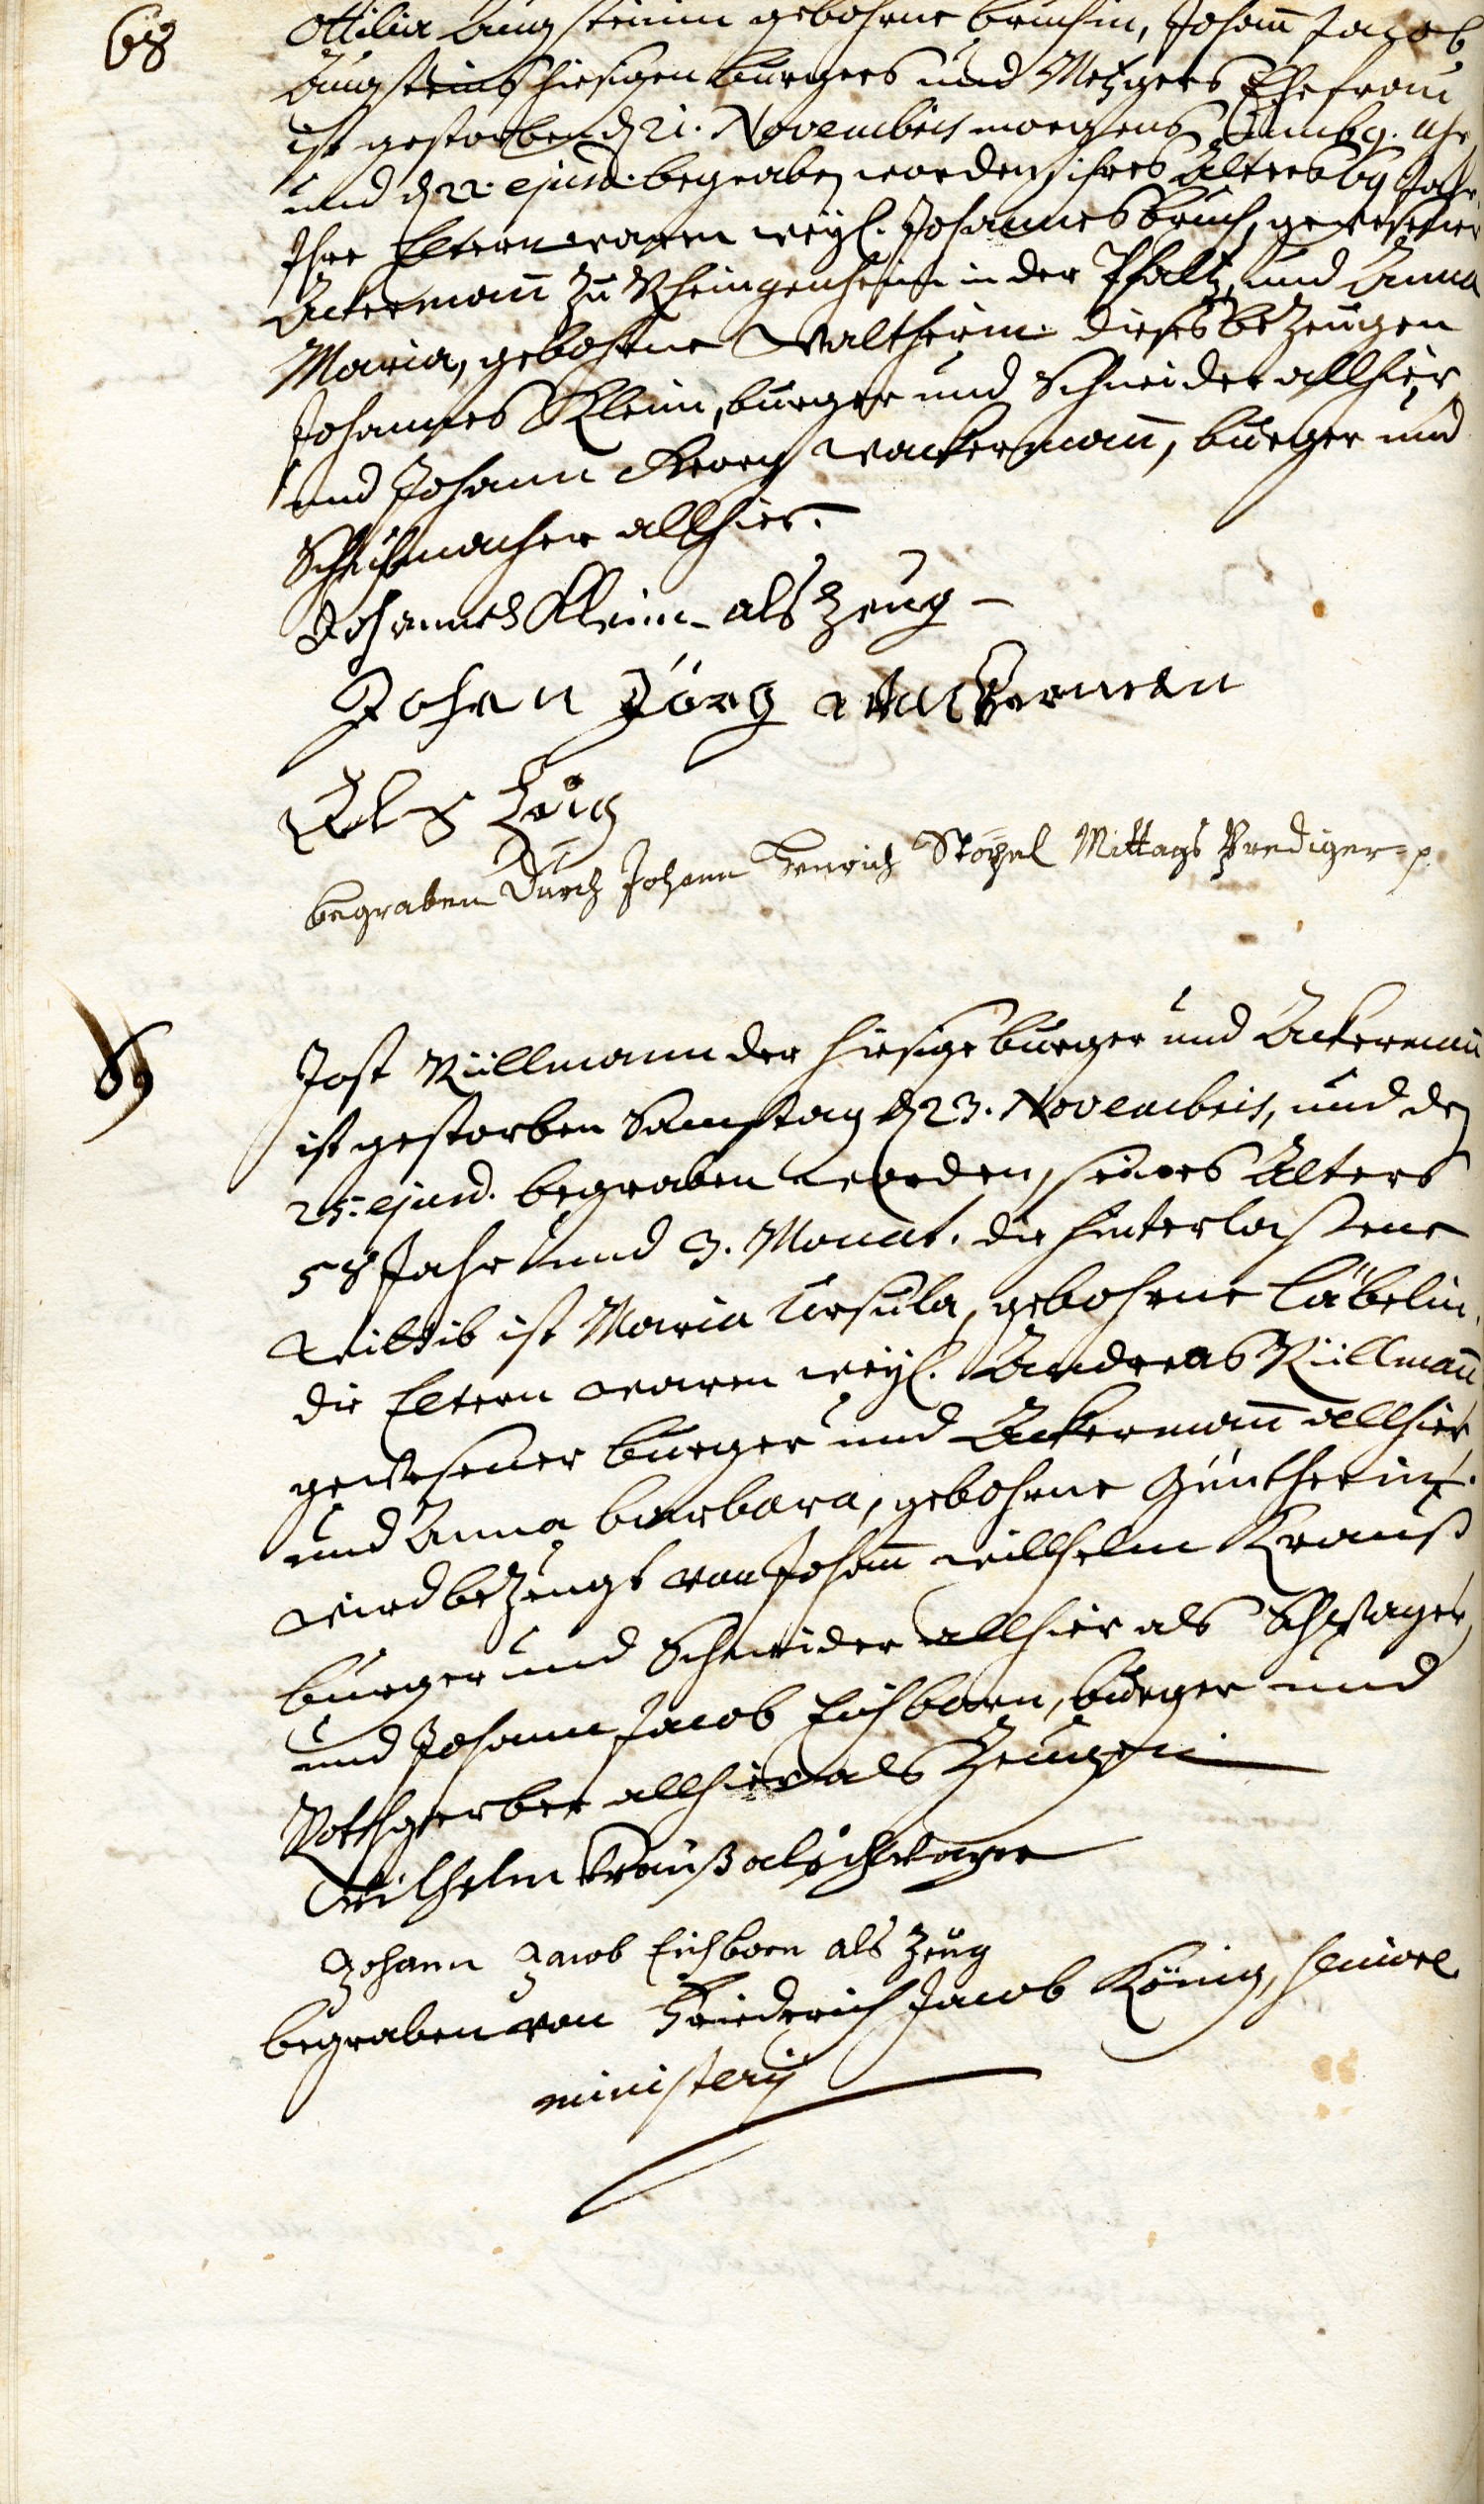 68
Ottilia Augsteinin gebohrne Bruchin, Johann Jacob
Augsteins hiesigen burgers und Metzgers Ehefrau
ist gestorben d 21. Novembris morgens umb 9. uhr
und d 22. ejusd. begraben worden, ihres Alters 69 Jahr.
Ihre Eltern waren weyl. Johannes Bruch, gewesener
Ackermann zu Rheingenheim in der Pfaltz, und Anna
Maria, gebohrne Waltherin. dieses bezeugen
Johannes Klein, burger und Schneider allhier
und Johann Georg Wackermann, burger und
Schuhmacher allhier.
Johannes Klein als Zeug
Johan Jörg Wackerman
Als Zeig
begraben durch Johann Henrich Stözel Mittags Prediger
69
Jost Küllmann der hiesige burger und Ackermann
ist gestorben Samstag d 23. Novembris, und den
25. ejusd. begraben worden, seines Alters
58 Jahr und 3. Monat. die hinterlaßene
Wittib ist Maria Ursula, gebohrne Läbelin.
die Eltern waren weyl. Andreas Küllmann
gewesener burger und Ackermann allhier
und Anna Barbara, gebohrne Güntherin.
wird bezeugt von Johann Willhelm Krauß
burger und Schneider allhier als Schwager,
und Johann Jacob Eichborn, burger und
Rothgerber allhier als Zeugen
Wilhelm Krauß als schwager
Johann Jacob Eichborn als Zeug
begraben von Friederich Jacob König, Seniore
ministerij